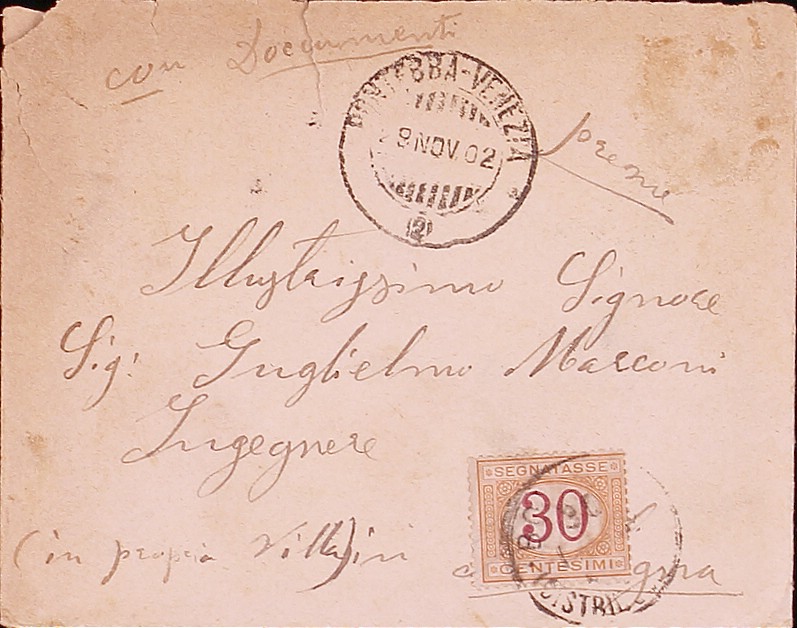 con Documenti
PONTEBBA-VENEZIA
29 NOV. 02
(2)
preme
Illustrissimo Signore
Sig: Guglielmo Marconi
Ingegnere
(in propria Villa) in
SEGNATASSE
30
CENTESIMI